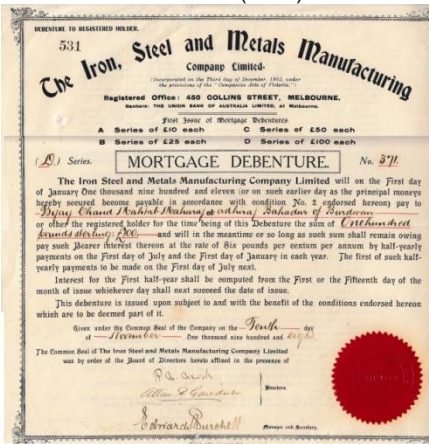 DEBENTURE TO REGISTERED HOLDER.
531
The Iron, Steel and Metals Manufacturing
Company Limited.
(Incorporated on the Third day of December, 1902, under
the provisions of the "Companies Acts of Victoria.")
Registered Office: 450 COLLINS STREET, MELBOURNE.
Bankers: THE UNION BANK OF AUSTRALIA LIMITED, at Melbourne.
First Issue of Mortgage Debentures
A Series of £10 each C Series of £50 each
B Series of £25 each D Series of £100 each
(D) Series. MORTGAGE DEBENTURE. No. 371.
The Iron Steel and Metals Manufacturing Company Limited will on the First day
of January One thousand nine hundred and eleven (or on such earlier day as the principal moneys
hereby secured become payable in accordance with condition No. 2 endorsed hereon) pay to
Bijay Chand Mahtab Maharaj adhiraj Bahadur of Burdwan
or other the registered holder for the time being of this Debenture the sum of One hundred
pounds sterling £100 and will in the meantime or so long as such sum shall remain owing
pay such Bearer interest thereon at the rate of Six pounds per centum per annum by half-yearly
payments on the First day of July and the First day of January in each year. The first of such half-
yearly payments to be made on the First day of July next.
Interest for the First half-year shall be computed from the First or the Fifteenth day of the
month of issue whichever day shall next succeed the date of issue.
This debenture is issued upon subject to and with the benefit of the conditions endorsed hereon
which are to be deemed part of it.
Given under the Common Seal of the Company on the Tenth day
of November One thousand nine hundred and eight.
The Common Seal of The Iron Steel and Metals Manufacturing Company Limited
was by order of the Board of Directors hereto affixed in the presence of
Directors
Edward Burchell
Manager and Secretary.